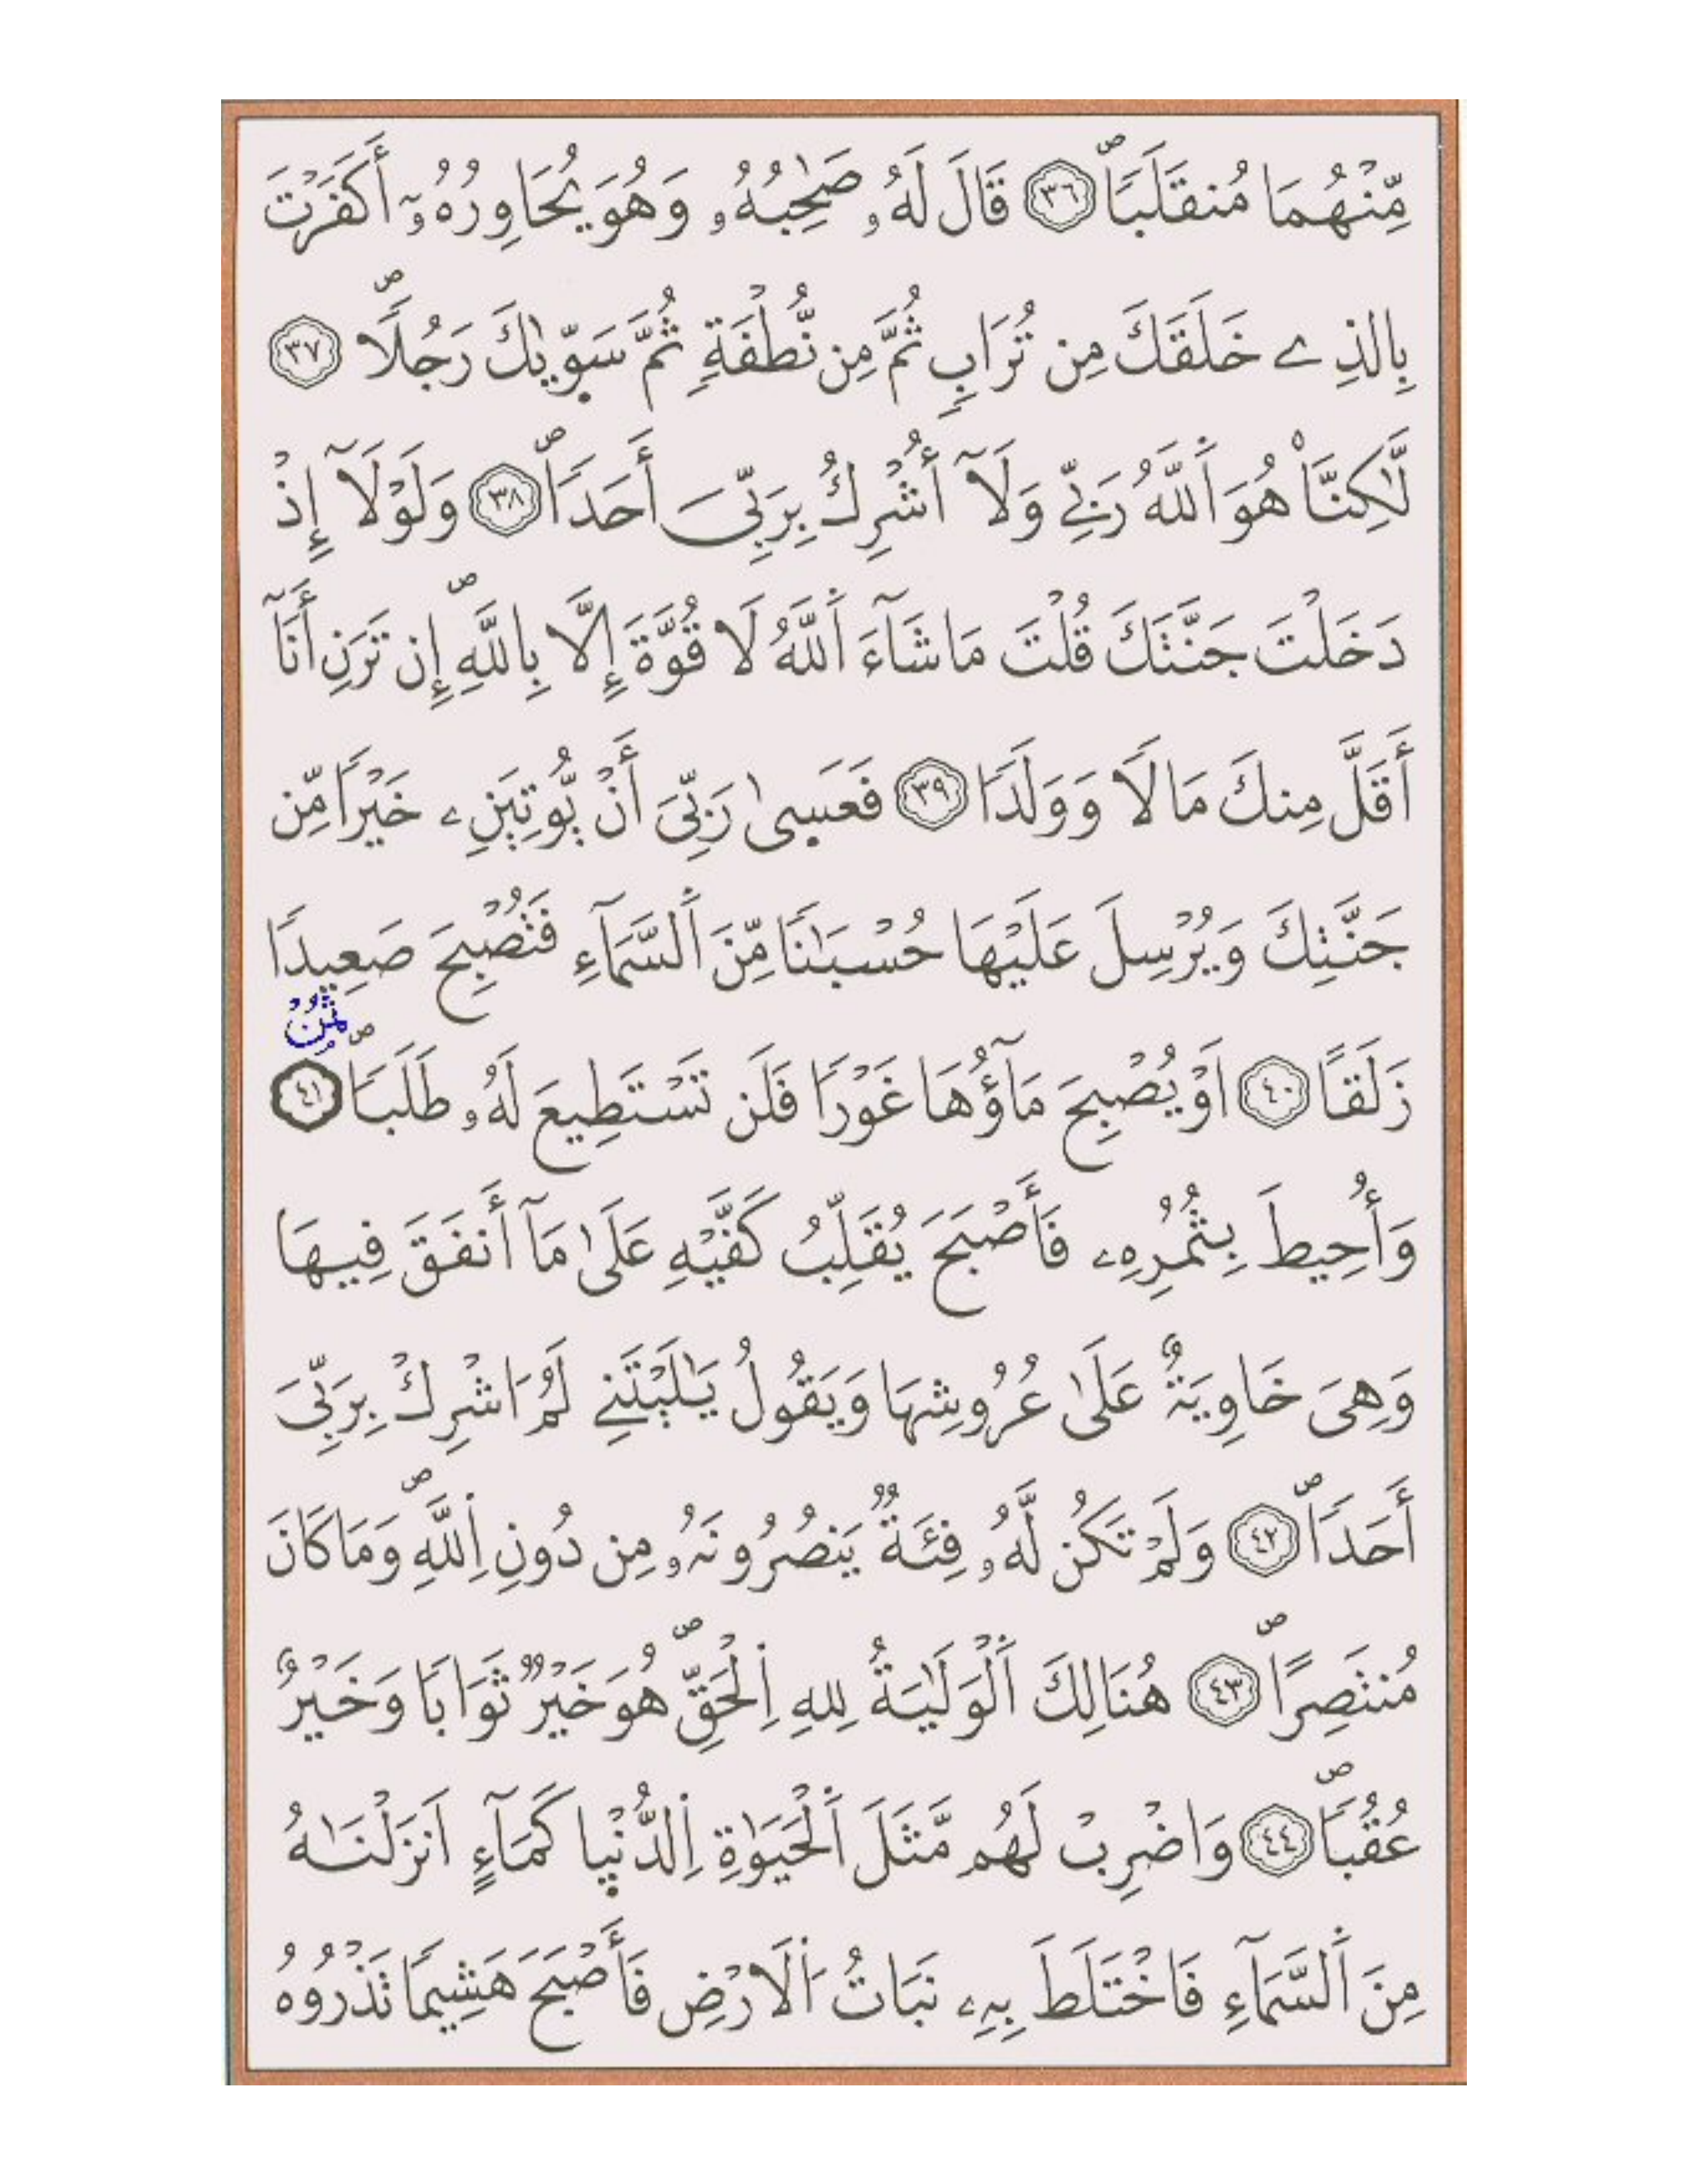 مِّنْهُمَا مُنقَلَباٗۖ ٣٦ قَالَ لَهُۥ صَٰحِبُهُۥ وَهُوَ يُحَاوِرُهُۥٓ أَكَفَرْتَ
بِالذِے خَلَقَكَ مِن تُرَابٖ ثُمَّ مِن نُّطْفَةٖ ثُمَّ سَوّ۪يٰكَ رَجُلاٗۖ ٣٧
لَّٰكِنَّا۠ هُوَ اَ۬للَّهُ رَبِّے وَلَآ أُشْرِكُ بِرَبِّيَ أَحَداٗۖ ٣٨ وَلَوْلَآ إِذْ
دَخَلْتَ جَنَّتَكَ قُلْتَ مَا شَآءَ اَ۬للَّهُ لَا قُوَّةَ إِلَّا بِاللَّهِۖ إِن تَرَنِ أَنَآ
أَقَلَّ مِنكَ مَالاٗ وَوَلَداٗ ٣٩ فَعَس۪ىٰ رَبِّيَ أَنْ يُّوتِيَنِۦ خَيْراٗ مِّن
جَنَّتِكَ وَيُرْسِلَ عَلَيْهَا حُسْبَٰناٗ مِّنَ اَ۬لسَّمَآءِ فَتُصْبِحَ صَعِيداٗ
ثمن
زَلَقاً ٤٠ اَوْ يُصْبِحَ مَآؤُهَا غَوْراٗ فَلَن تَسْتَطِيعَ لَهُۥ طَلَباٗۖ ٤١
وَأُحِيطَ بِثُمُرِهِۦ فَأَصْبَحَ يُقَلِّبُ كَفَّيْهِ عَلَىٰ مَآ أَنفَقَ فِيهَا
وَهِيَ خَاوِيَةٌ عَلَىٰ عُرُوشِهَا وَيَقُولُ يَٰلَيْتَنِے لَمُ اُشْرِكْ بِرَبِّيَ
أَحَداٗۖ ٤٢ وَلَمْ تَكُن لَّهُۥ فِئَةٞ يَنصُرُونَهُۥ مِن دُونِ اِ۬للَّهِۖ وَمَا كَانَ
مُنتَصِراًۖ ٤٣ هُنَالِكَ اَ۬لْوَلَٰيَةُ لِلهِ اِ۬لْحَقِّۖ هُوَ خَيْرٞ ثَوَاباٗ وَخَيْرٌ
عُقُباٗۖ ٤٤ وَاضْرِبْ لَهُم مَّثَلَ اَ۬لْحَيَوٰةِ اِ۬لدُّنْي۪ا كَمَآءٍ اَنزَلْنَٰهُ
مِنَ اَ۬لسَّمَآءِ فَاخْتَلَطَ بِهِۦ نَبَاتُ اُ۬لَارْضِ فَأَصْبَحَ هَشِيماٗ تَذْرُوهُ